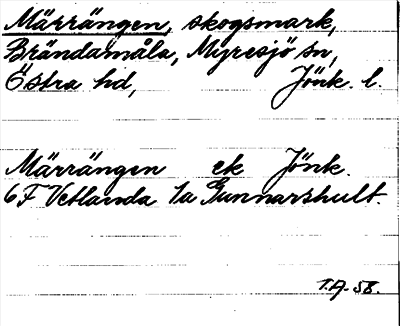 Märrängen, skogsmark,
Brändamåla, Myresjö sn,
Östra hd, Jönk. l.
Märrängen ek Jönk.
6F Vetlanda 1a Gunnarshult.
T.A. 58.